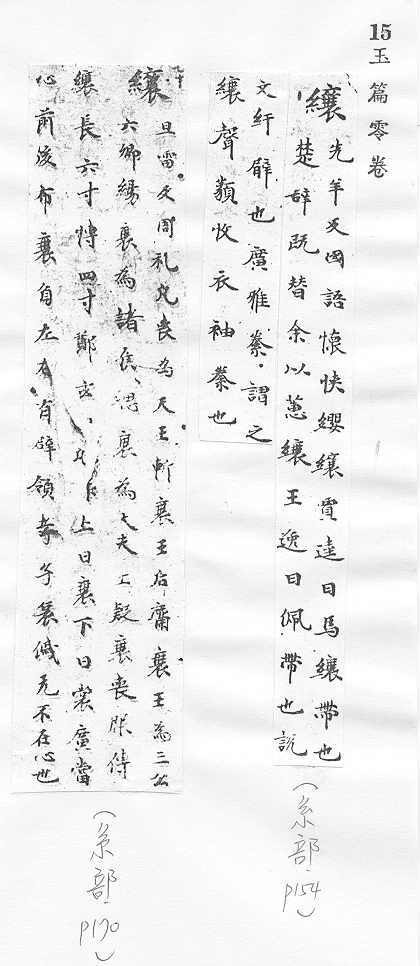 15 玉篇零卷
纕 先羊反國語懷快纓纕賈逵曰馬纕帶也
楚辞既替余以蕙纕王逸曰佩帶也說
文紆臂也廣雅豢謂之
纕聲類收衣袖豢也
(糸部 p154)
縗 且雷反周礼凡喪為天王斬衰王后齊衰王為三公
六卿緆衰為諸侯緦衰為大夫士疑衰喪服傳
縗長六寸愽四寸鄭玄上曰衰下曰裳廣當
心前後布衰負左右有辟領孝子哀慽无不在心也
(糸部 p170)